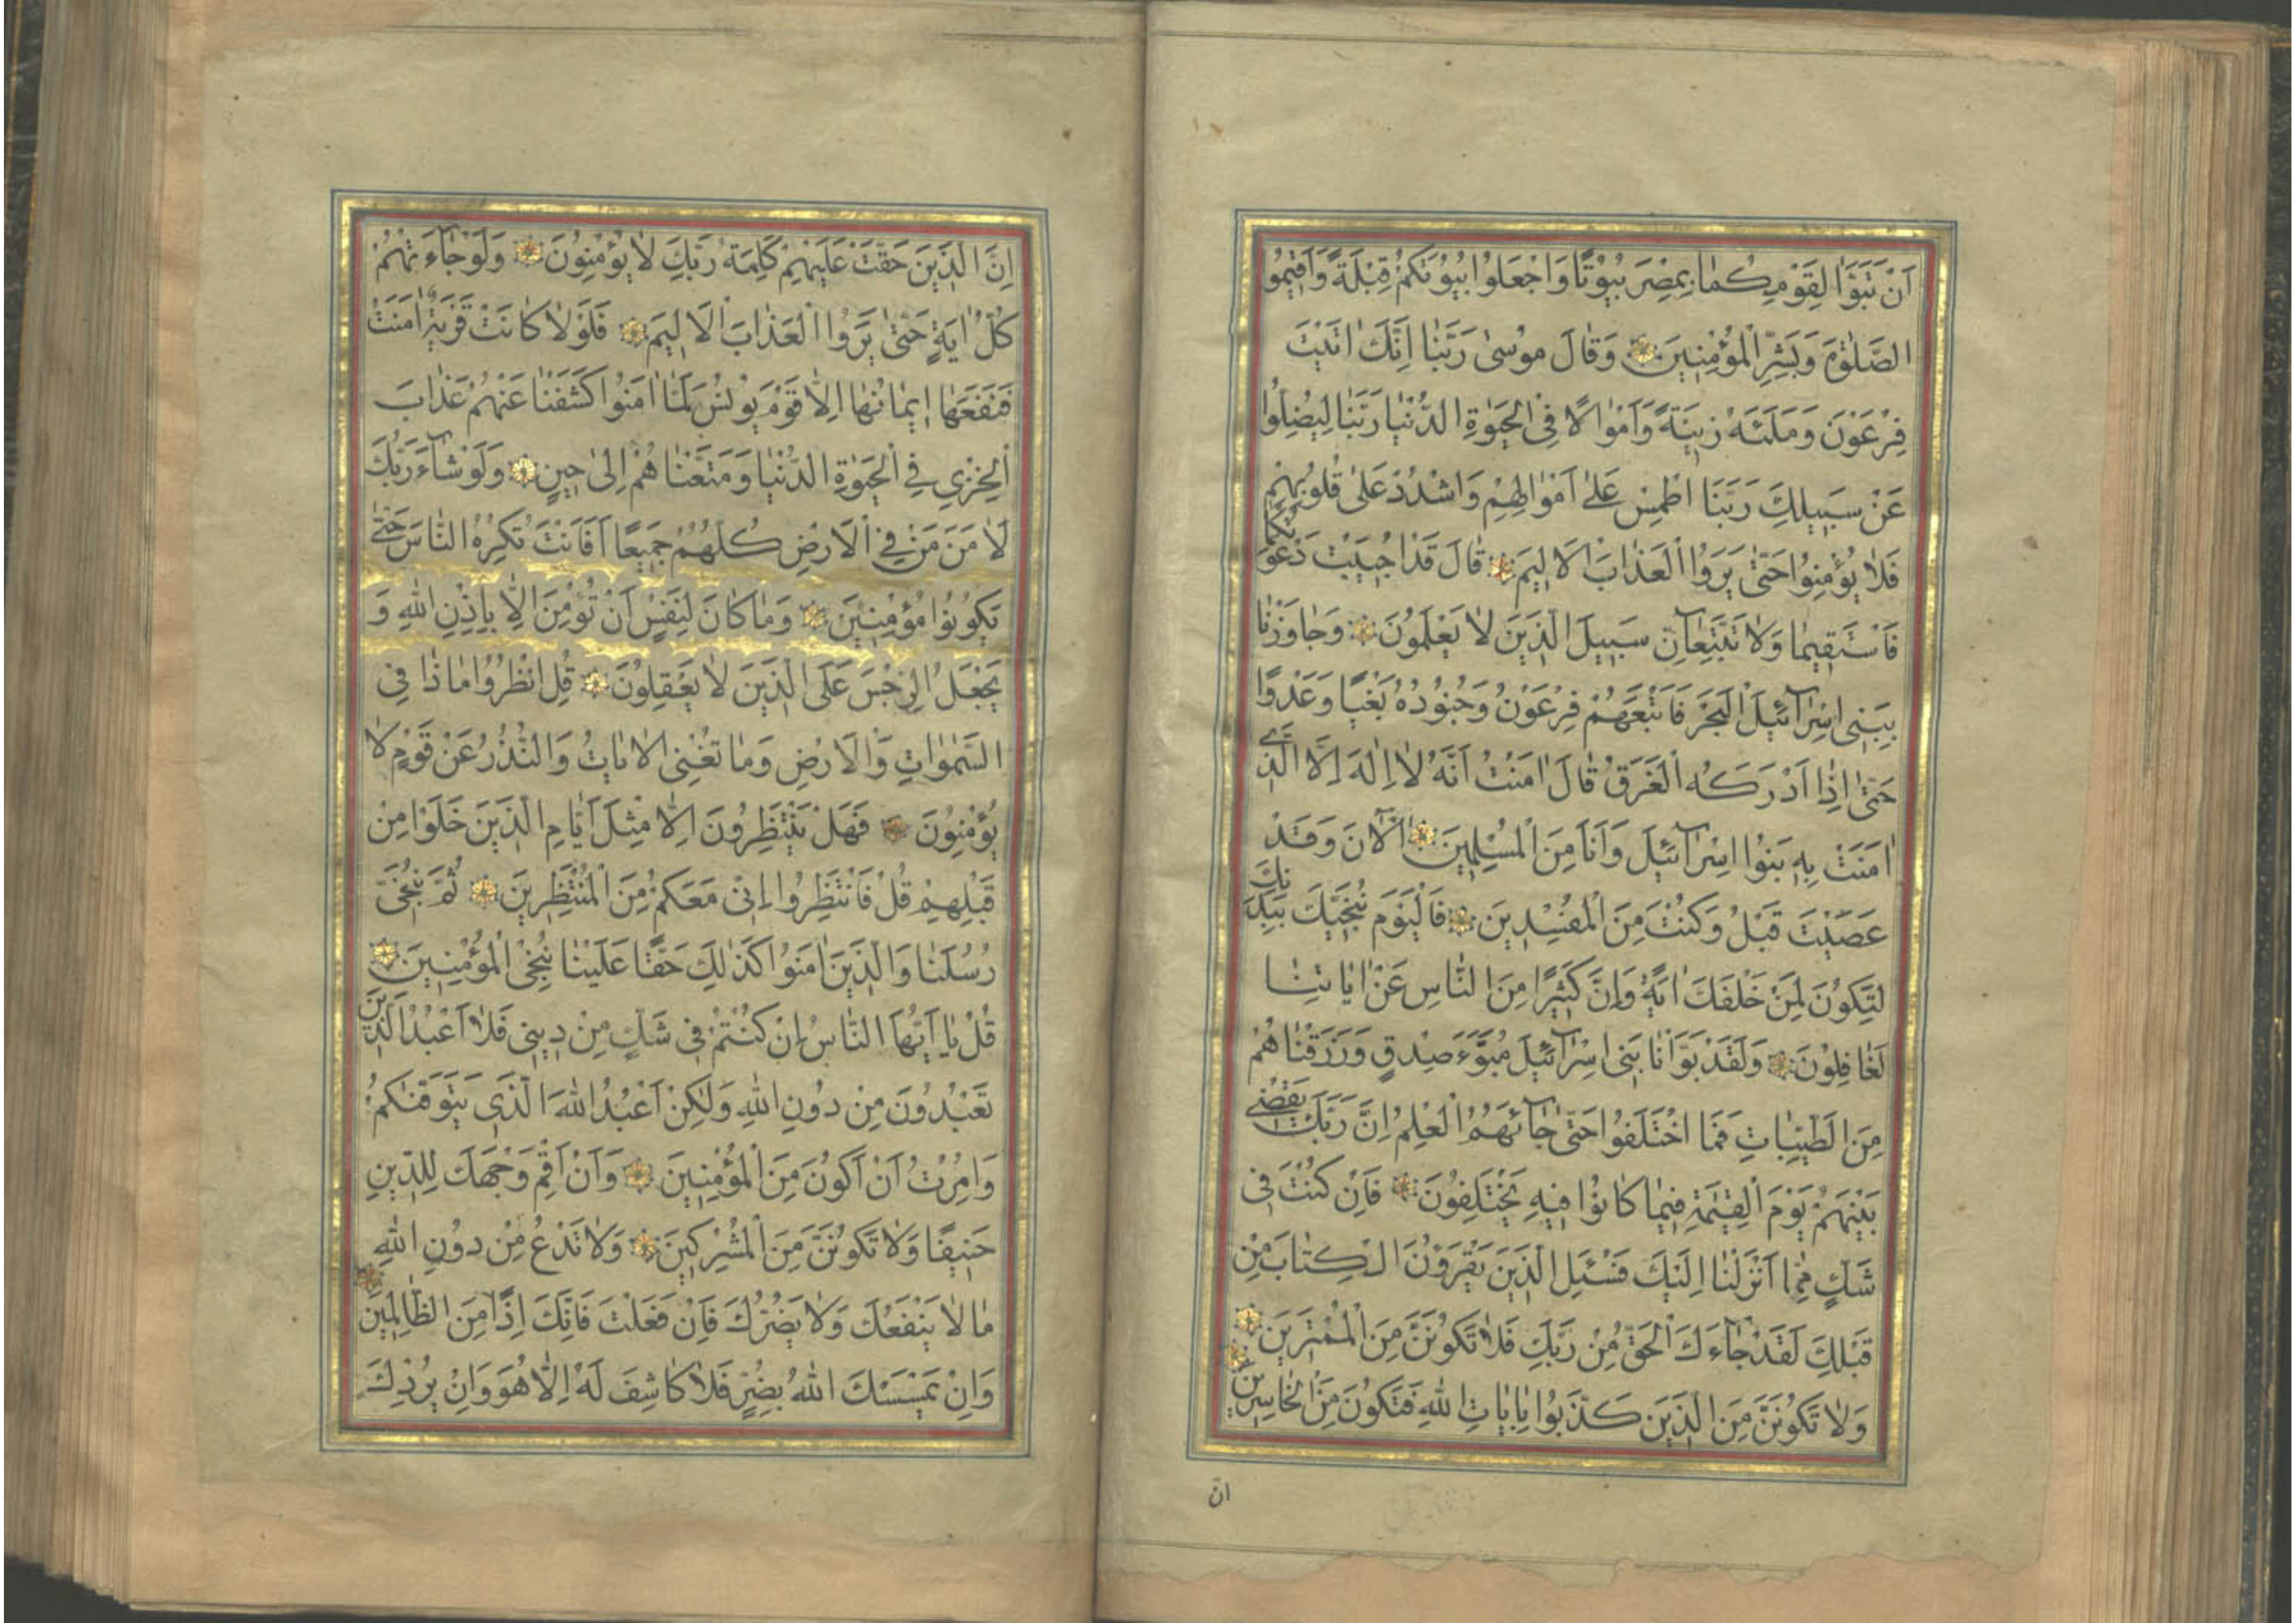 اَنْ تَبَوَّاٰ لِقَوْمِكُمٰا بِمِصْرَ بُيُوْتًا وَاجْعَلُوا بُيُوتَكُمْ قِبْلَةً وَاَقِيمُوا
الصَّلٰوةَ وَبَشِّرِ الْمُؤْمِنِينَ وَقٰالَ مُوسىٰ رَبَّنٰا اِنَّكَ اٰتَيْتَ
فِرْعَوْنَ وَمَلَئَهُ زِينَةً وَاَمْوٰالًا فِى الْحَيٰوةِ الدُّنْيٰا رَبَّنٰا لِيُضِلُّوا
عَنْ سَبِيلِكَ رَبَّنَا اطْمِسْ عَلىٰ اَمْوٰالِهِمْ وَاشْدُدْ عَلىٰ قُلُوبِهِمْ
فَلٰا يُؤْمِنُوا حَتّىٰ يَرَوُا الْعَذٰابَ الْاَلِيمَ قٰالَ قَدْ اُجِيبَتْ دَعْوَتُكُمٰا
فَاسْتَقِيمٰا وَلٰا تَتَّبِعٰآنِّ سَبِيلَ الَّذِينَ لٰا يَعْلَمُونَ وَجٰاوَزْنٰا
بِبَنِى اِسْرٰآئِيلَ الْبَحْرَ فَاَتْبَعَهُمْ فِرْعَوْنُ وَجُنُودُهُ بَغْيًا وَعَدْوًا
حَتّىٰ اِذٰا اَدْرَكَهُ الْغَرَقُ قٰالَ اٰمَنْتُ اَنَّهُ لٰا اِلٰهَ اِلَّا الَّذِى
اٰمَنَتْ بِهِ بَنُوا اِسْرٰآئِيلَ وَاَنَا مِنَ الْمُسْلِمِينَ آلْاٰنَ وَقَدْ
عَصَيْتَ قَبْلُ وَكُنْتَ مِنَ الْمُفْسِدِينَ فَالْيَوْمَ نُنَجِّيكَ بِبَدَنِكَ
لِتَكُونَ لِمَنْ خَلْفَكَ اٰيَةً وَاِنَّ كَثِيرًا مِنَ النّٰاسِ عَنْ اٰيٰاتِنٰا
لَغٰافِلُونَ وَلَقَدْ بَوَّاْنٰا بَنِى اِسْرٰآئِيلَ مُبَوَّءَ صِدْقٍ وَرَزَقْنٰاهُمْ
مِنَ الطَّيِّبٰاتِ فَمَا اخْتَلَفُوا حَتّىٰ جٰآئَهُمُ الْعِلْمُ اِنَّ رَبَّكَ يَقْضِى
بَيْنَهُمْ يَوْمَ الْقِيٰمَةِ فِيمٰا كٰانُوْا فِيهِ يَخْتَلِفُونَ فَاِنْ كُنْتَ فِى
شَكٍّ مِمّٰا اَنْزَلْنٰا اِلَيْكَ فَسْئَلِ الَّذِينَ يَقْرَؤُنَ الْكِتٰابَ مِنْ
قَبْلِكَ لَقَدْ جٰآءَكَ الْحَقُّ مِنْ رَبِّكَ فَلٰا تَكُونَنَّ مِنَ الْمُمْتَرِينَ
وَلٰا تَكُونَنَّ مِنَ الَّذِينَ كَذَّبُوا بِاٰيٰاتِ اللّٰهِ فَتَكُونَ مِنَ الْخٰاسِرِينَ
انّ
اِنَّ الَّذِينَ حَقَّتْ عَلَيْهِمْ كَلِمَةُ رَبِّكَ لٰا يُؤْمِنُونَ وَلَوْ جٰآءَتْهُمْ
كُلُّ اٰيَةٍ حَتّىٰ يَرَوُا الْعَذٰابَ الْاَلِيمَ فَلَوْلٰا كٰانَتْ قَرْيَةٌ اٰمَنَتْ
فَنَفَعَهٰا اِيمٰانُهٰا اِلّٰا قَوْمَ يُونُسَ لَمّٰا اٰمَنُوا كَشَفْنٰا عَنْهُمْ عَذٰابَ
الْخِزْيِ فِي الْحَيٰوةِ الدُّنْيٰا وَمَتَّعْنٰاهُمْ اِلىٰ حِينٍ وَلَوْ شٰآءَ رَبُّكَ
لَاٰمَنَ مَنْ فِي الْاَرْضِ كُلُّهُمْ جَمِيعًا اَفَاَنْتَ تُكْرِهُ النّٰاسَ حَتّىٰ
يَكُونُوا مُؤْمِنِينَ وَمٰا كٰانَ لِنَفْسٍ اَنْ تُؤْمِنَ اِلّٰا بِاِذْنِ اللّٰهِ وَ
يَجْعَلُ الرِّجْسَ عَلَى الَّذِينَ لٰا يَعْقِلُونَ قُلِ انْظُرُوا مٰا ذٰا فِى
السَّمٰوٰاتِ وَالْاَرْضِ وَمٰا تُغْنِى الْاٰيٰاتُ وَالنُّذُرُ عَنْ قَوْمٍ لٰا
يُؤْمِنُونَ فَهَلْ يَنْتَظِرُونَ اِلّٰا مِثْلَ اَيّٰامِ الَّذِينَ خَلَوْا مِنْ
قَبْلِهِمْ قُلْ فَانْتَظِرُوا اِنِّى مَعَكُمْ مِنَ الْمُنْتَظِرِينَ ثُمَّ نُنَجِّى
رُسُلَنٰا وَالَّذِينَ اٰمَنُوا كَذٰلِكَ حَقًّا عَلَيْنٰا نُنْجِى الْمُؤْمِنِينَ
قُلْ يٰا اَيُّهَا النّٰاسُ اِنْ كُنْتُمْ فِى شَكٍّ مِنْ دِينِى فَلٰا اَعْبُدُ الَّذِينَ
تَعْبُدُونَ مِنْ دُونِ اللّٰهِ وَلٰكِنْ اَعْبُدُ اللّٰهَ الَّذِى يَتَوَفّٰىكُمْ
وَاُمِرْتُ اَنْ اَكُونَ مِنَ الْمُؤْمِنِينَ وَاَنْ اَقِمْ وَجْهَكَ لِلدِّينِ
حَنِيفًا وَلٰا تَكُونَنَّ مِنَ الْمُشْرِكِينَ وَلٰا تَدْعُ مِنْ دُونِ اللّٰهِ
مٰا لٰا يَنْفَعُكَ وَلٰا يَضُرُّكَ فَاِنْ فَعَلْتَ فَاِنَّكَ اِذًا مِنَ الظّٰالِمِينَ
وَاِنْ يَمْسَسْكَ اللّٰهُ بِضُرٍّ فَلٰا كٰاشِفَ لَهُ اِلّٰا هُوَ وَاِنْ يُرِدْكَ